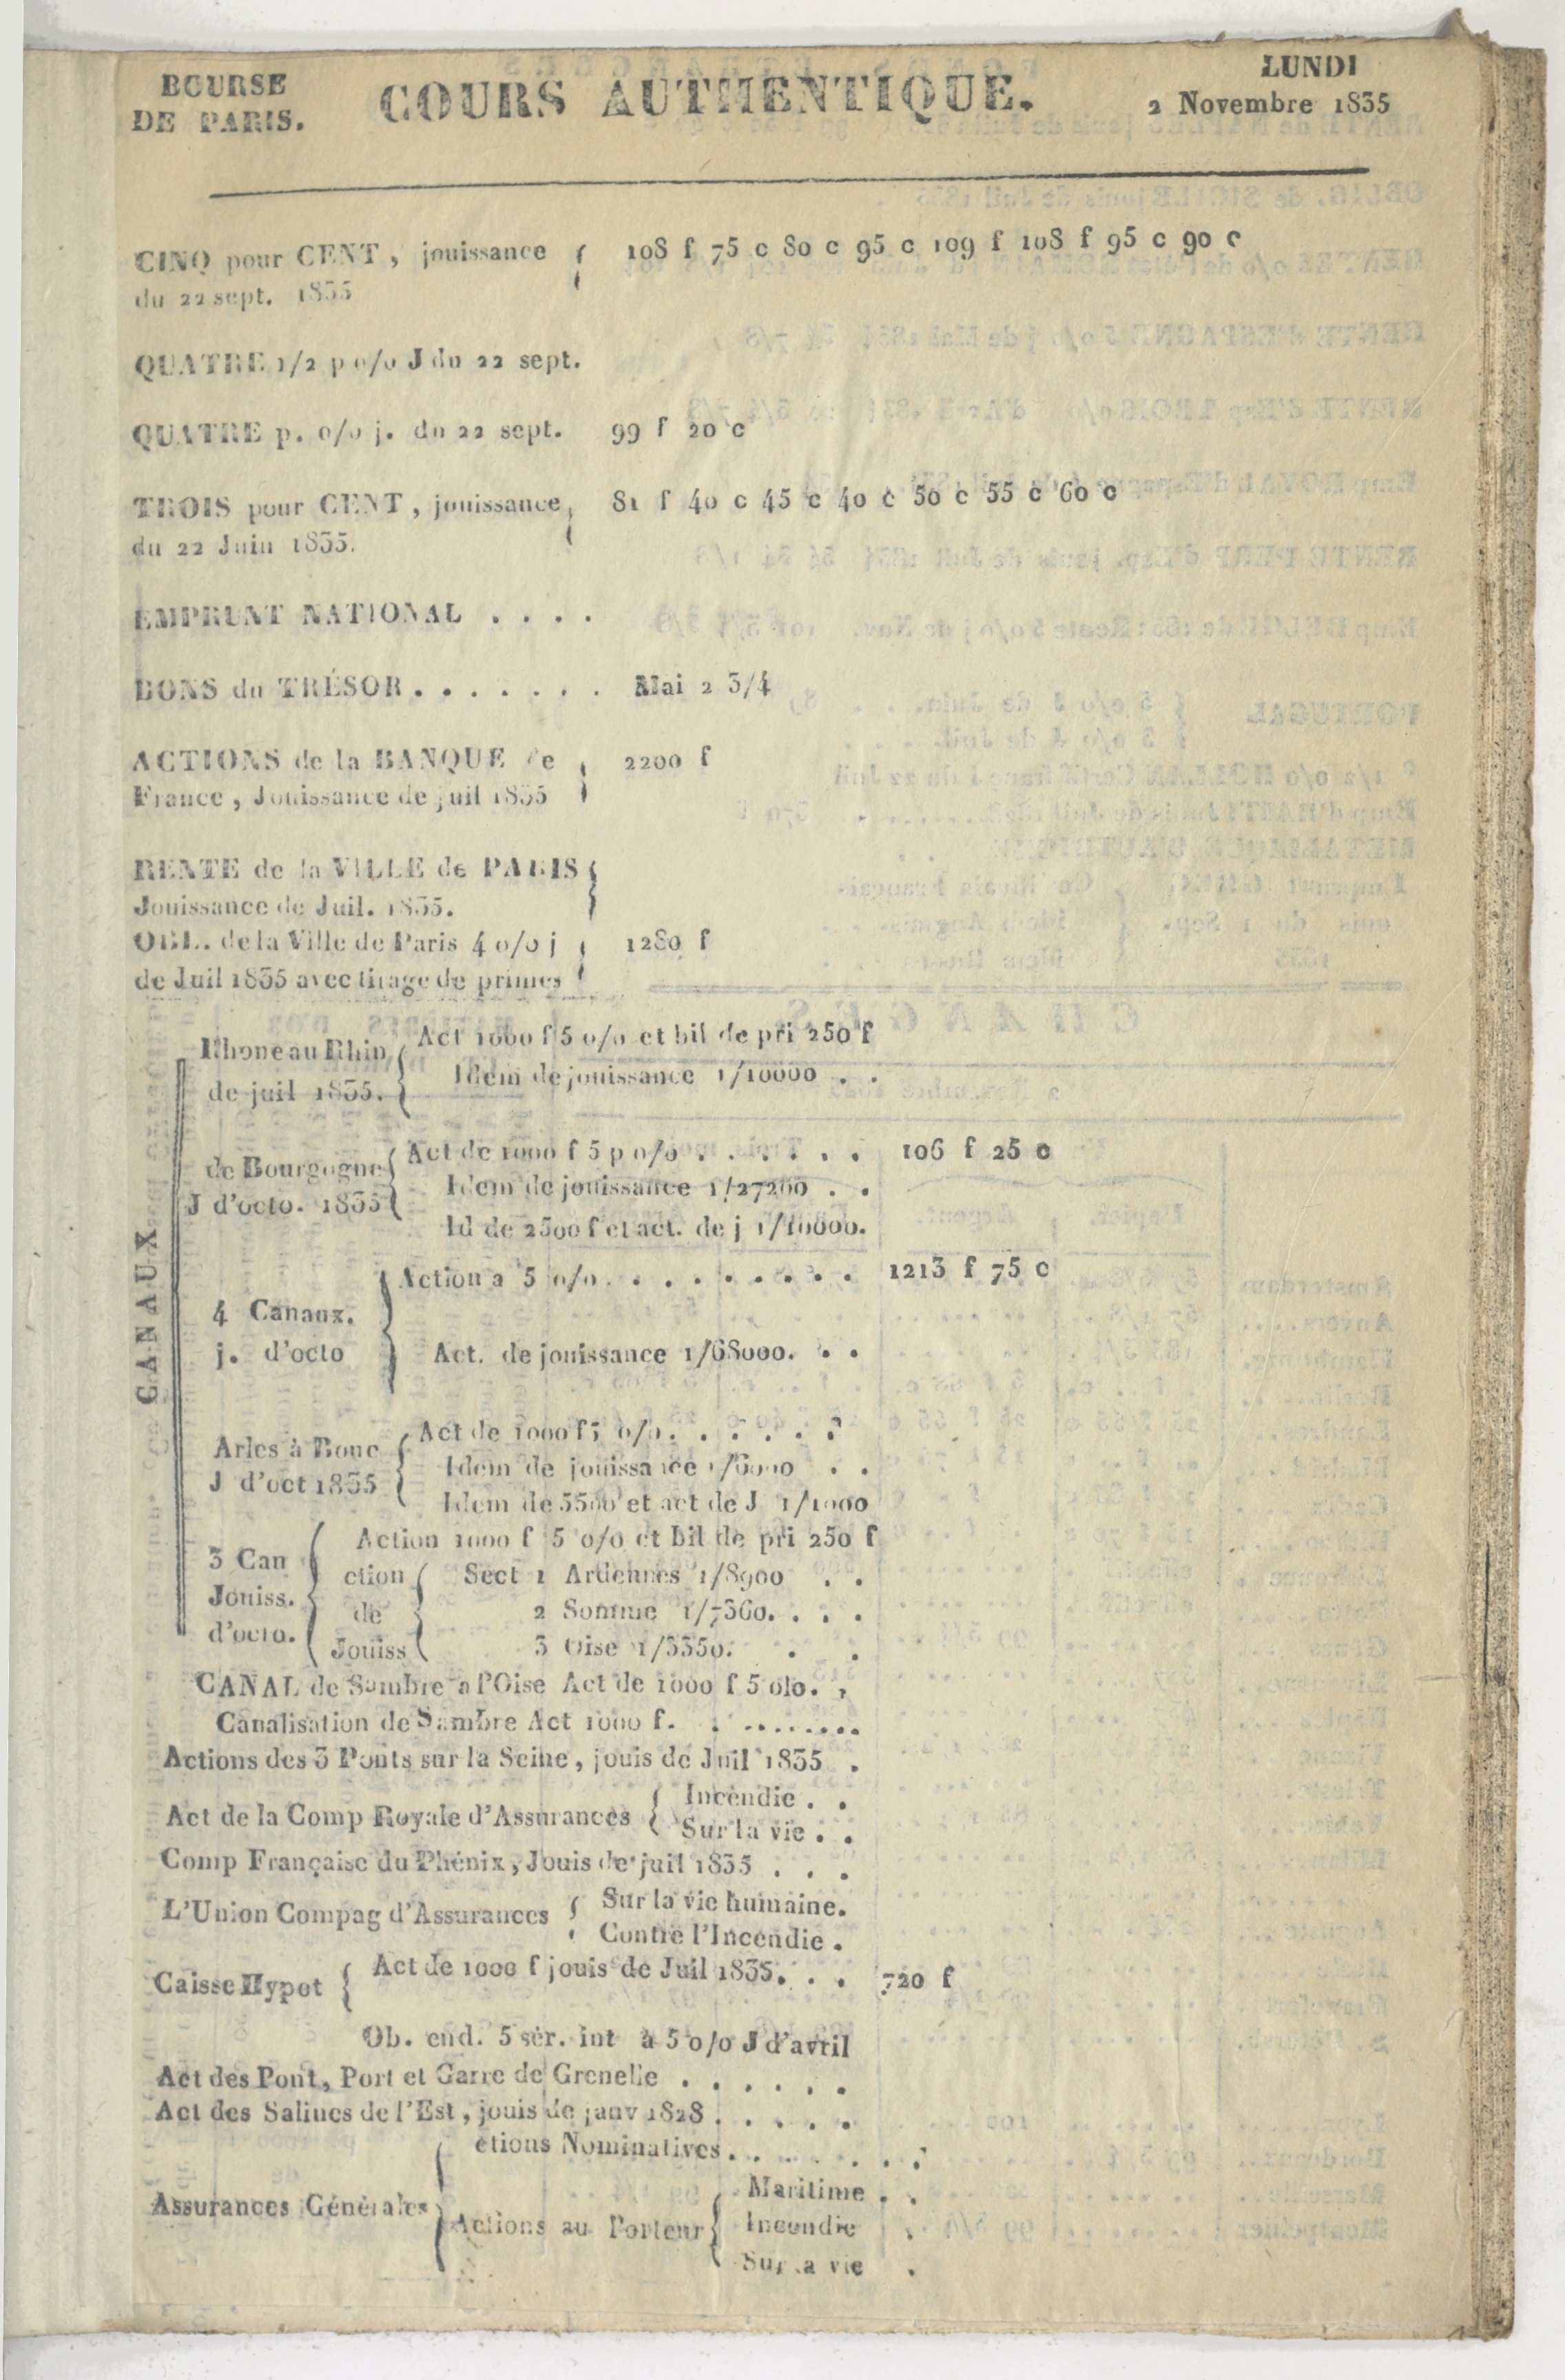 BOURSE
DE PARIS.
COURS AUTHENTIQUE.
LUNDI
2 Novembre 1835
CINQ pour CENT, jouissance
du 22 sept. 1835
108 f 75 c 80 c 95 c 109 f 108 f 95 c 90 c
QUATRE 1/2 p o/o J du 22 sept.
QUATRE p. o/o j. du 22 sept. 99 f 20 c
TROIS pour CENT, jouissance
du 22 Juin 1835.
81 f 40 c 45 c 40 c 50 c 55 c 60 c
EMPRUNT NATIONAL . . . .
BONS du TRÉSOR . . . . . . . Mai 2 3/4
ACTIONS de la BANQUE de
France, Jouissance de juil 1835
2200 f
RENTE de la VILLE de PARIS
Jouissance de Juil. 1835.
OBL. de la Ville de Paris 4 o/o j
de Juil 1835 avec tirage de primes
1280 f
CANAUX
Rhone au Rhin
de juil 1835.
Act 1000 f 5 o/o et bil de pri 250 f
Idem de jouissance 1/10000 . .
de Bourgogne
J d'octo. 1835
Act de 1000 f 5 p o/o . . . . . . 106 f 25 c
Idem de jouissance 1/27200 . .
Id de 2500 f et act. de j 1/10000.
4 Canaux.
j. d'octo
Action a 5 o/o . . . . . . . . . 1213 f 75 c
Act. de jouissance 1/68000. . .
Arles à Bouc
J d'oct 1835
Act de 1000 f 5 o/o. . . . . .
Idem de jouissance . .
Idem de et act de J 1/1000
3 Can
Jouiss.
d'octo.
Action 1000 f 5 o/o et bil de pri 250 f
ction
de
Jouiss
Sect 1 Ardennes 1/8900 . .
2 Somme 1/7360. . . .
3 Oise 1/3350. . .
CANAL de Sambre a l'Oise Act de 1000 f 5 olo. ,
Canalisation de Sambre Act 1000 f. . ........
Actions des 3 Ponts sur la Seine, jouis de Juil 1835 .
Act de la Comp Royale d'Assurances
Incendie . .
Sur la vie . .
Comp Française du Phénix, Jouis de juil 1835 . . .
L'Union Compag d'Assurances
Sur la vie humaine.
Contre l'Incendie .
Caisse Hypot
Act de 1000 f jouis de Juil 1835. . . 720 f
Ob. end. 5 sér. int à 5 o/o J d'avril
Act des Pont, Port et Garre de Grenelle . . . . . .
Act des Salines de l'Est, jouis de janv 1828 . . . . .
Assurances Générales
ctions Nominatives . . . . . . .
Actions au Porteur
Maritime . .
Incendie .
Sur la vie .